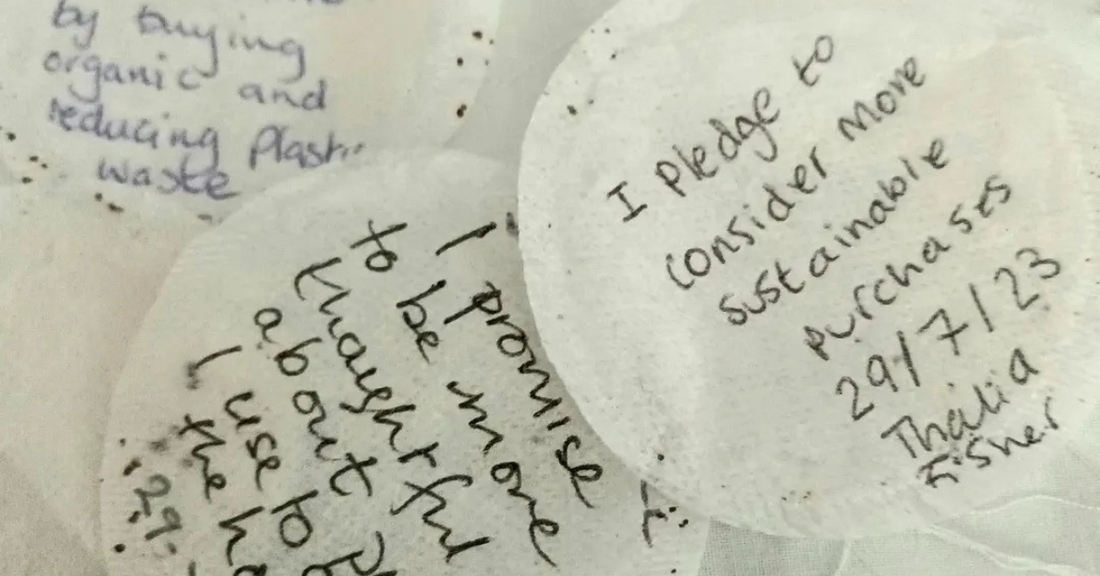 by buying
organic and
reducing plastic
waste
I promise
to be more
thoughtful
about
I use to
the
29.
I pledge to
consider more
sustainable
purchases
29/7/23
Thalia
Fisher